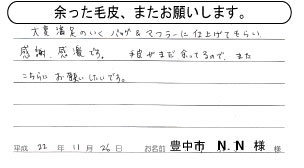 余った毛皮、またお願いします。
大変満足のいくバッグ&マフラーに仕上げてもらい
感謝、感激です。 毛皮がまだ余ってるので、また
こちらにお願いしたいです。
平成 22 年 11 月 26 日 お名前 豊中市 N.N 様 様